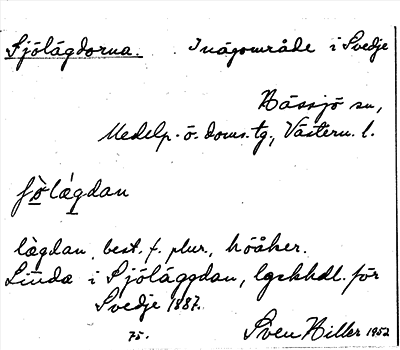 Sjölägdorna. Inägområde i Svedje
Hässjö sn,
Medelp. ö. doms.tg., Västern. l.
fö̀lǽgdan
lægdan, best. f. plur., höåker.
Linda i Sjöläggdan, lgskhdl. för
Svedje 1887.
75. Sven Hiller 1952